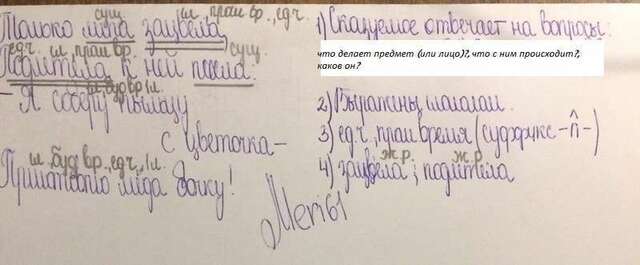 сущ. гл. прош. вр., ед.ч.
Только липа зацвела,
ед.ч. гл. прош. вр. сущ.
Подлетела к ней пчела:
гл. буд. вр. 1л.
- Я соберу пыльцу
с цветочка-
гл. буд. вр., ед.ч., 1л.
Приготовлю мёда бочку!
Meri61
1) Сказуемое отвечает на вопросы:
что делает предмет (или лицо)?, что с ним происходит?,
каков он?
2) Выражены глаголом.
3) ед.ч., прош время (суффикс -л-)
ж.р. ж.р.
4) зацвела; подлетела